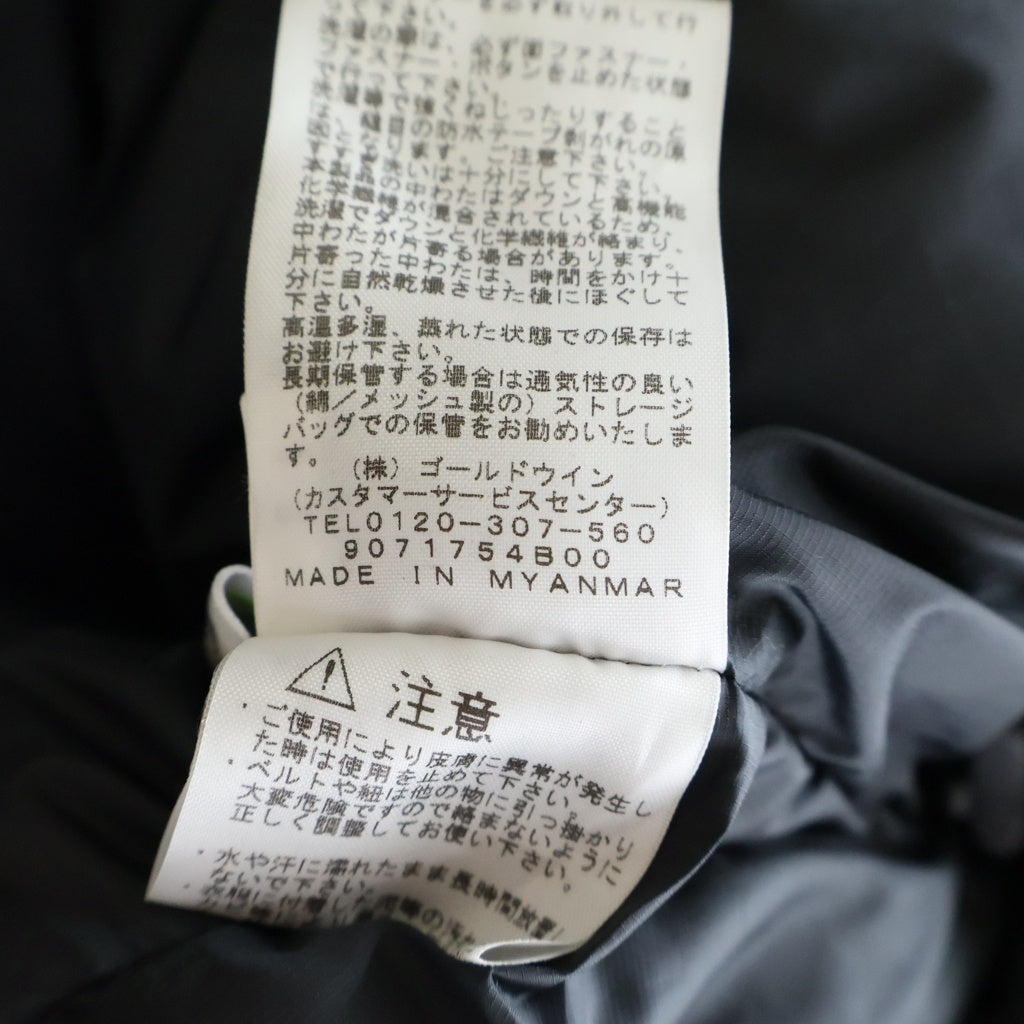 必ず取り外して行
下さい。
は、必ず面ファスナー・
ボタンを止めた状態
下さい。
強くねじったりすること
の防水テープ剥がれの原
ます。ご注意下さい。
は十分にして下さい。
中わたはダウンと高機能
化学繊維が混合されているため、
洗濯でダウンと化学繊維が絡まり、
中わたが片寄る場合があります。
片寄った中わたは、時間をかけ十
分に自然乾燥させた後にほぐして
下さい。
高温多湿、蒸れた状態での保存は
お避け下さい。
長期保管する場合は通気性の良い
(綿/メッシュ製の)ストレージ
バッグでの保管をお勧めいたしま
す。
(株)ゴールドウイン
(カスタマーサービスセンター)
TEL0120-307-560
9071754B00
MADE IN MYANMAR
注意
・ご使用により皮膚に異常が発生し
た時は使用を止めて下さい。
・ベルトや紐は他の物に引っ掛かり
大変危険ですので絡まないように
正しく調整してお使い下さい。
・水や汗に濡れたまま長時間放置し
ないで下さい。
衣服に付着し